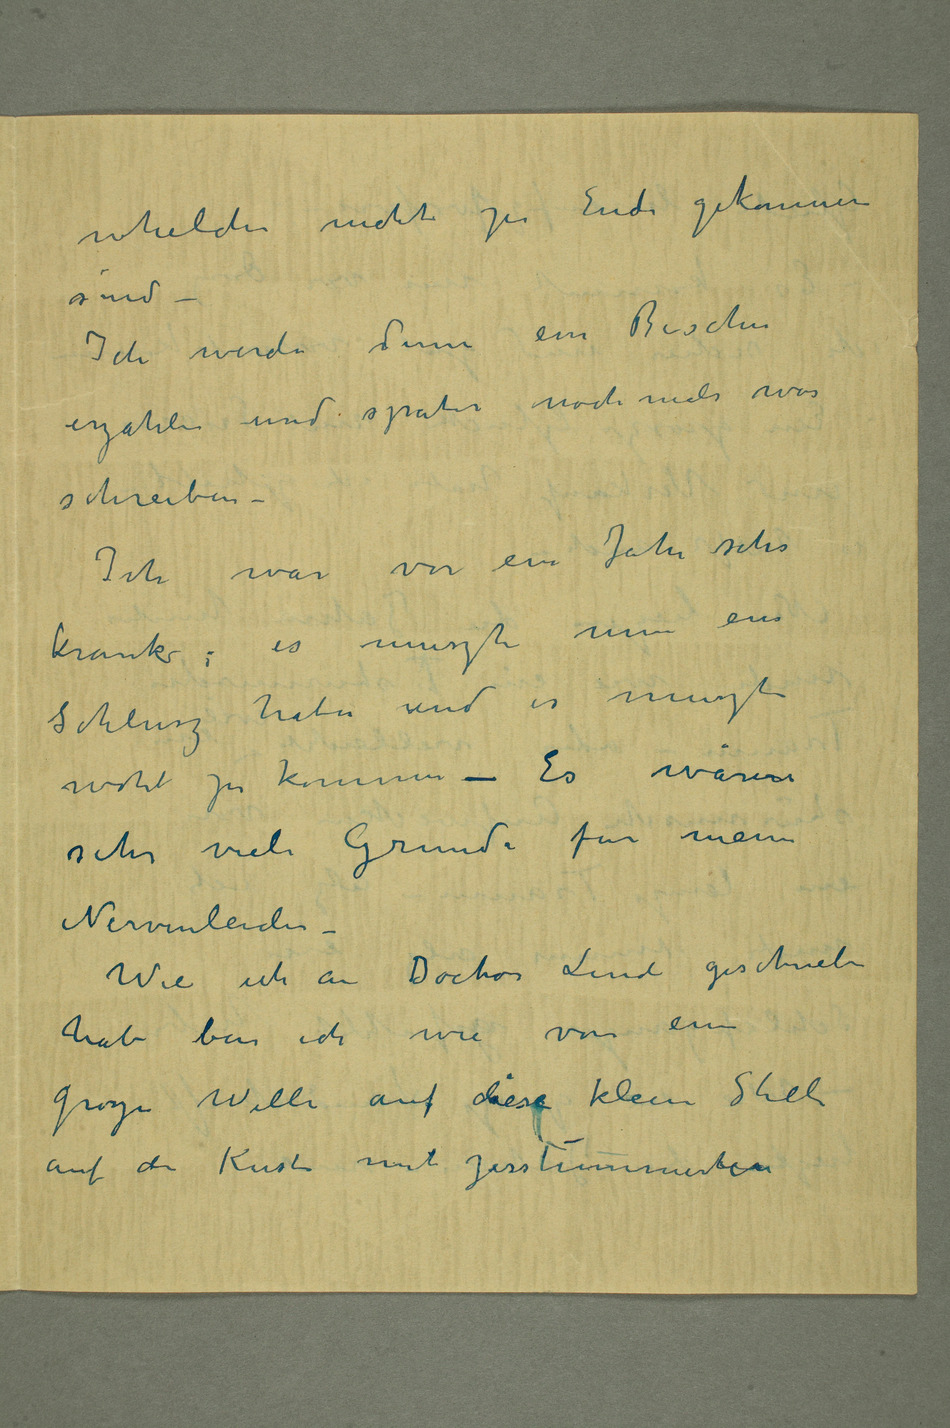 nicht zu Ende gekommen
sind –
Ich werde Ihnen ein Bischen
erzählen und später nochmals was
schreiben –
Ich war vor ein Jahr sehr
krank; es muszte nun ein
Schlusz haben und es muszte
wohl zu kommen – Es wären
sehr viele Grunde für meine
Nervenleiden –
Wie ich an Doctor Linde geschrieben
habe bin ich wie von eine
grosze Welle auf diese kleine Stelle
auf die Kuste mit zerstrümmerten